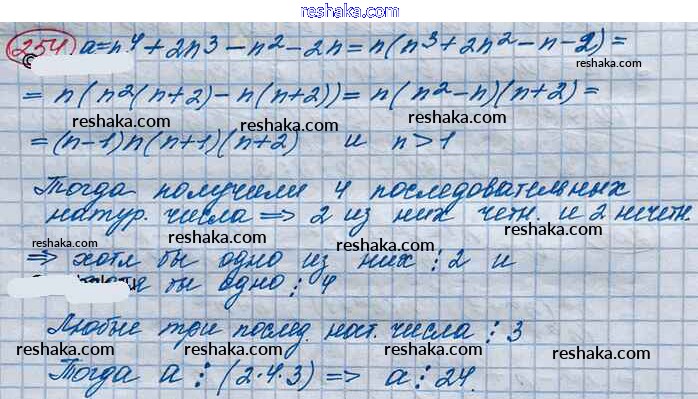 reshaka.com
254) a=n⁴+2n³-n²-2n=n(n³+2n²-n-2)=
= n(n²(n+2)-n(n+2))= n(n²-n)(n+2)=
reshaka.com reshaka.com
=(n-1)n(n+1)(n+2) и n>1
reshaka.com reshaka.com
Тогда получили 4 последовательных
reshaka.com
натур. числа ⇒ 2 из них четн. и 2 нечетн.
reshaka.com
⇒ хотя бы одно из них ⋮ 2 и
бы одно ⋮ 4
reshaka.com
Любые три послед. нат. числа ⋮ 3
reshaka.com reshaka.com reshaka.com
Тогда a ⋮ (2·4·3) ⇒ a ⋮ 24.
reshaka.com